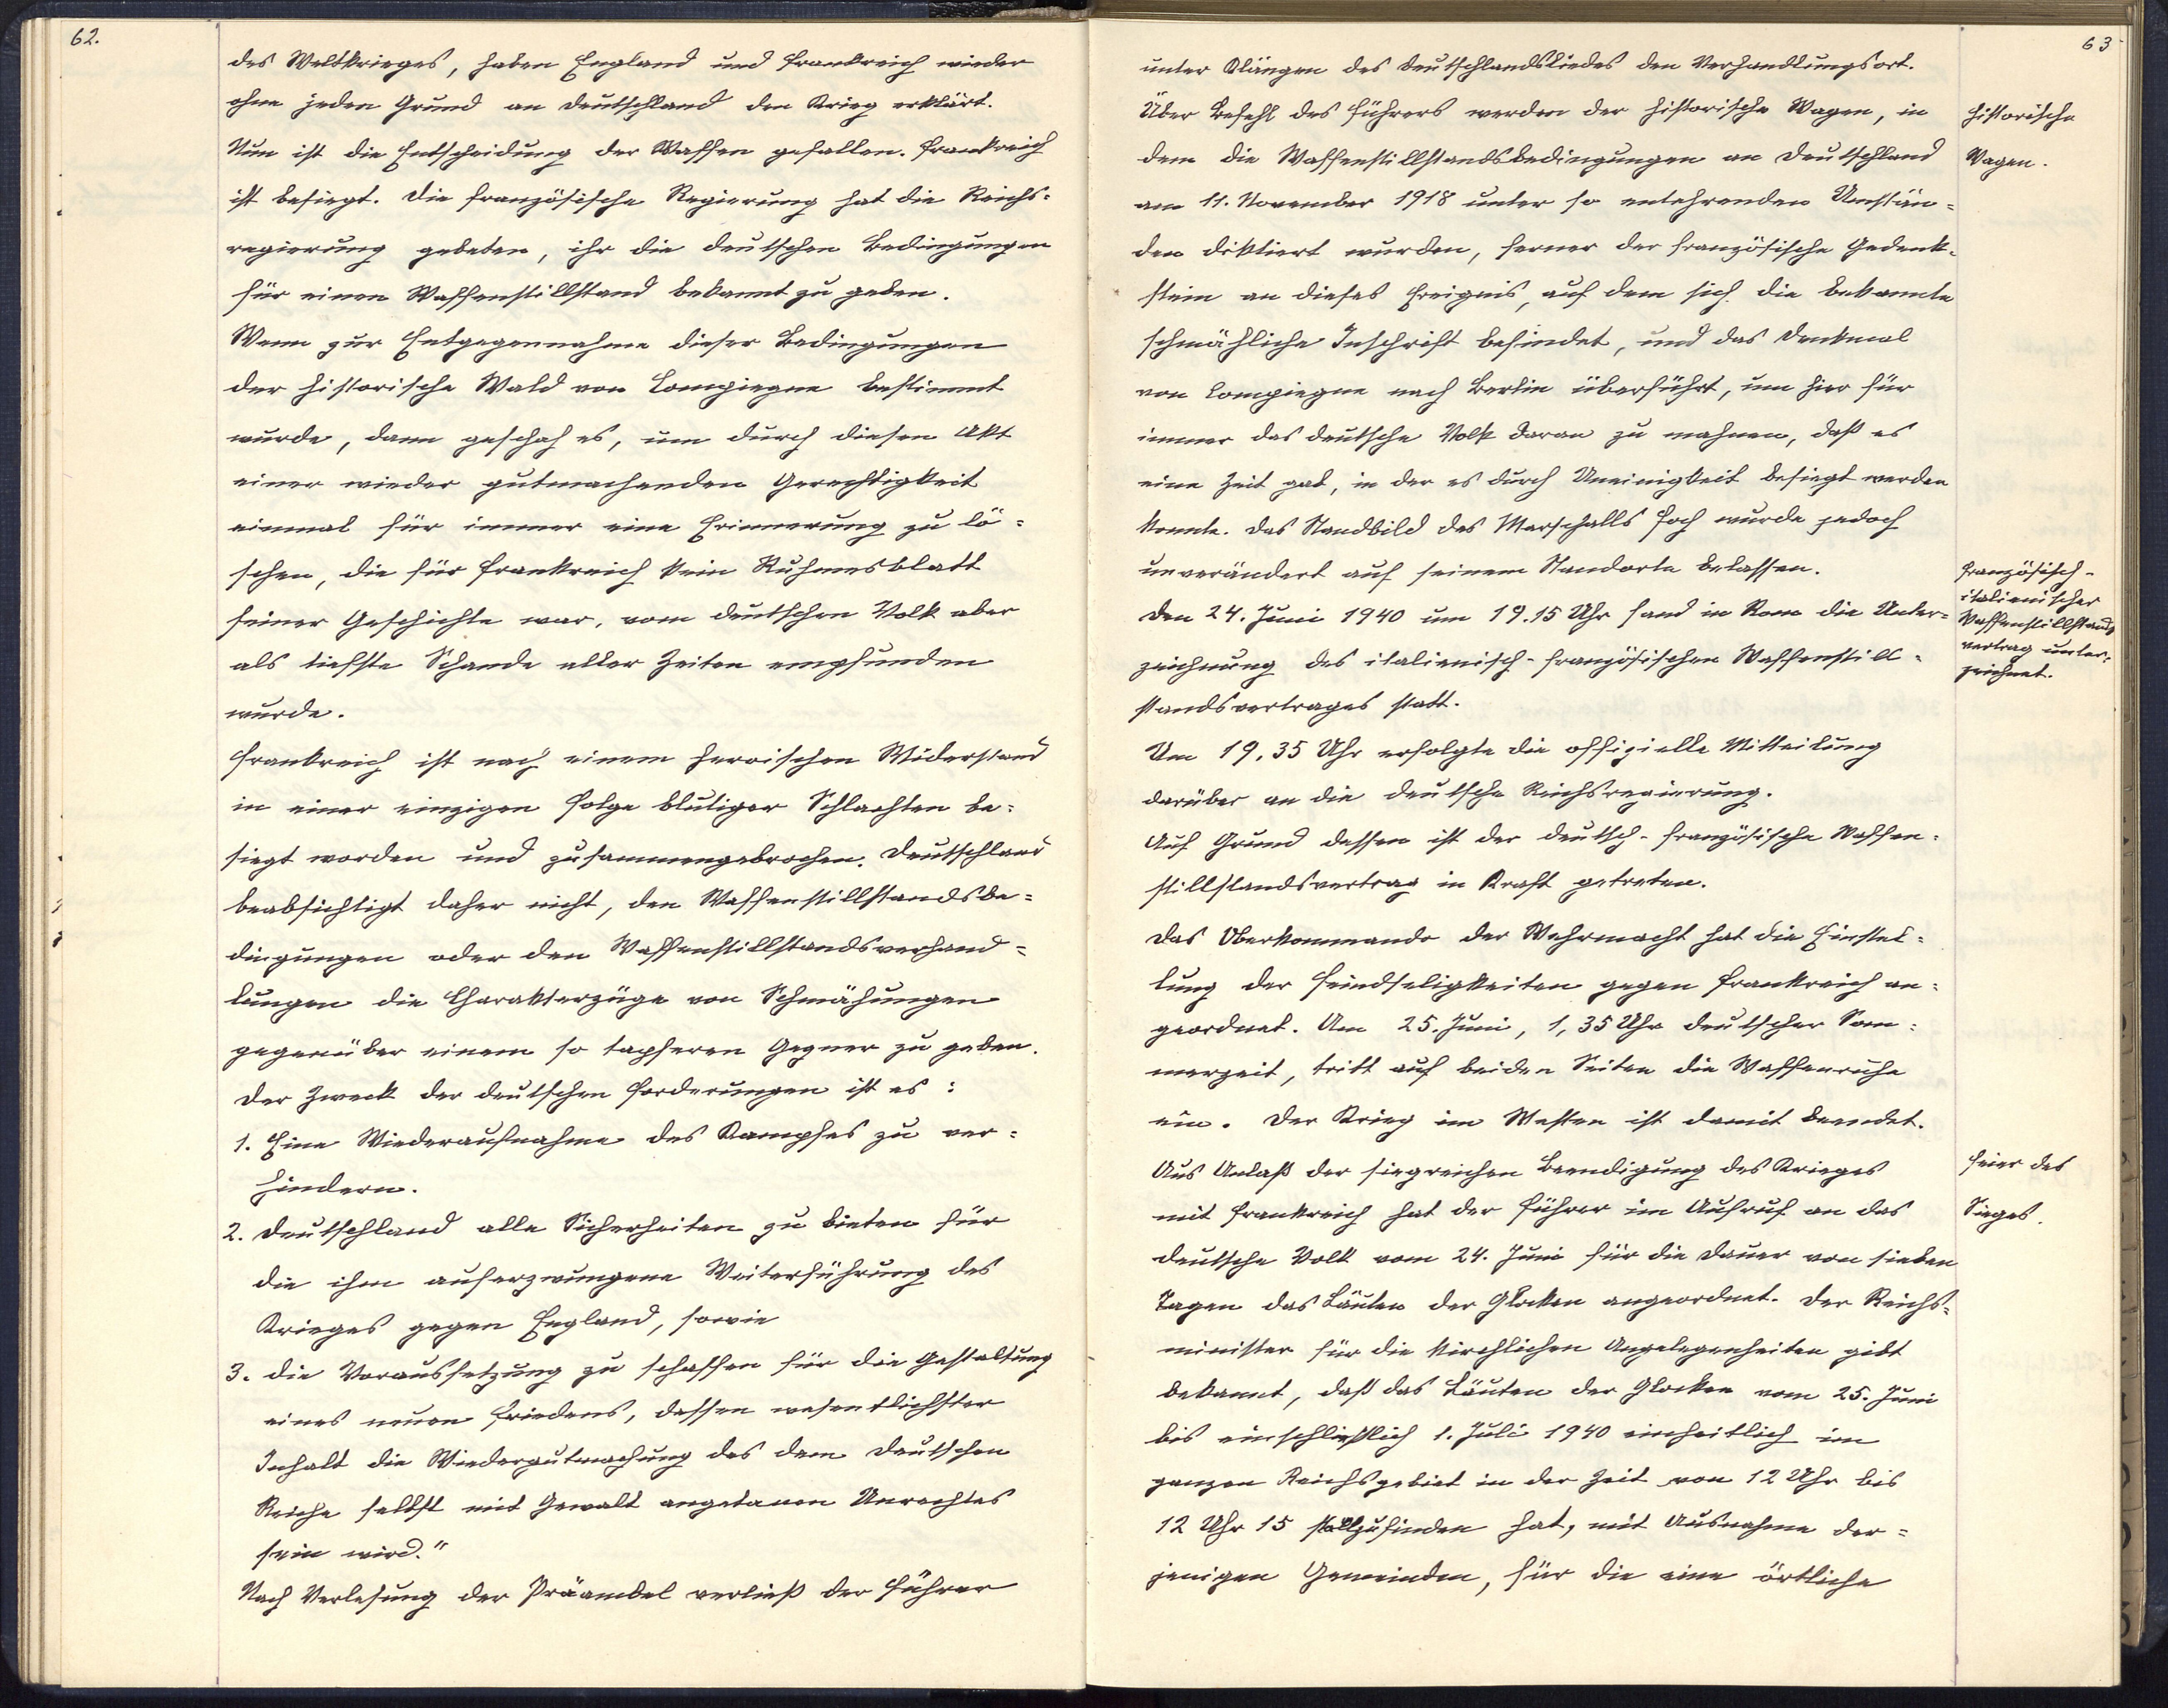 62.
des Weltkrieges, haben England und Frankreich wieder
ohne jeden Grund an Deutschland den Krieg erklärt.
Nun ist die Entscheidung der Waffen gefallen. Frankreich
ist besiegt. Die französische Regierung hat die Reichs=
regierung gebeten, ihr die deutschen Bedingungen
für einen Waffenstillstand bekannt zu geben.
Wenn zur Entgegennahme dieser Bedingungen
der historische Wald von Compiegne bestimmt
wurde, dann geschah es, um durch diesen Akt
einer wieder gutmachenden Gerechtigkeit
einmal für immer eine Erinnerung zu lö=
schen, die für Frankreich kein Ruhmesblatt
seiner Geschichte war, vom deutschen Volk aber
als tiefste Schande aller Zeiten empfunden
wurde.
Frankreich ist nach einem heroischen Widerstand
in einer einzigen Folge blutiger Schlachten be=
siegt worden und zusammengebrochen. Deutschland
beabsichtigt daher nicht, den Waffenstillstandsbe=
dingungen oder den Waffenstillstandsverhand=
lungen die Charakterzüge von Schmähungen
gegenüber einem so tapferen Gegner zu geben.
Der Zweck der deutschen Forderungen ist es:
1. Eine Wiederaufnahme des Kampfes zu ver=
hindern.
2. Deutschland alle Sicherheiten zu bieten für
die ihm auferzwungene Weiterführung des
Krieges gegen England, sowie
3. die Voraussetzung zu schaffen für die Gestaltung
eines neuen Friedens, dessen wesentlichster
Inhalt die Wiedergutmachung des dem Deutschen
Reiche selbst mit Gewalt angetanen Unrechtes
sein wird."
Nach Verlesung der Präambel verließ der Führer
63
unter Klängen des Deutschlandsliedes den Verhandlungsort.
Über Befehl des Führers werden der historische Wagen, in
dem die Waffenstillstandsbedingungen an Deutschland
am 11. November 1918 unter so entehrenden Umstän=
den diktiert wurden, ferner der französische Gedenk=
stein an dieses Ereignis, auf dem sich die bekannte
schmähliche Inschrift befindet, und das Denkmal
von Compiegne nach Berlin überführt, um hier für
immer das deutsche Volk daran zu mahnen, daß es
eine Zeit gab, in der es durch Uneinigkeit besiegt werden
konnte. Das Standbild des Marschalls Foch wurde jedoch
unverändert auf seinem Standorte belassen.
Den 24. Juni 1940 um 19.15 Uhr fand in Rom die Unter=
zeichnung des italienisch-französischen Waffenstill=
standsvertrages statt.
Um 19,35 Uhr erfolgte die offizielle Mitteilung
darüber an die deutsche Reichsregierung.
Auf Grund dessen ist der deutsch-französische Waffen=
stillstandsvertrag in Kraft getreten.
Das Oberkommando der Wehrmacht hat die Einstel=
lung der Feindseligkeiten gegen Frankreich an=
geordnet. Am 25. Juni, 1,35 Uhr deutscher Som=
merzeit, tritt auf beiden Seiten die Waffenruhe
ein. Der Krieg im Westen ist damit beendet.
Aus Anlaß der siegreichen Beendigung des Krieges
mit Frankreich hat der Führer im Aufruf an das
deutsche Volk vom 24. Juni für die Dauer von sieben
Tagen das Läuten der Glocken angeordnet. Der Reichs=
minister für die kirchlichen Angelegenheiten gibt
bekannt, daß das Läuten der Glocken vom 25. Juni
bis einschließlich 1. Juli 1940 einheitlich im
ganzen Reichsgebiet in der Zeit von 12 Uhr bis
12 Uhr 15 stattzufinden hat, mit Ausnahme der=
jenigen Gemeinden, für die eine örtliche
historische
Wagen.
Französisch-
italienischer
Waffenstillstands
vertrag unter=
zeichnet.
Feier des
Sieges.